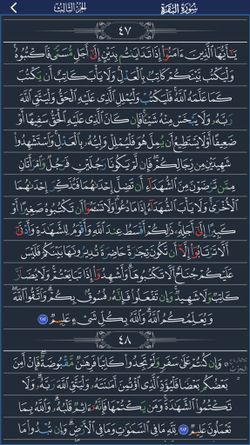 سُورَةُ البَقَرَةِ
الجُزءُ الثَّالِث
٤٧
يَٰٓأَيُّهَا ٱلَّذِينَ ءَامَنُوٓاْ إِذَا تَدَايَنتُم بِدَيۡنٍ إِلَىٰٓ أَجَلٖ مُّسَمّٗى فَٱكۡتُبُوهُۚ
وَلۡيَكۡتُب بَّيۡنَكُمۡ كَاتِبُۢ بِٱلۡعَدۡلِۚ وَلَا يَأۡبَ كَاتِبٌ أَن يَكۡتُبَ
كَمَا عَلَّمَهُ ٱللَّهُۚ فَلۡيَكۡتُبۡ وَلۡيُمۡلِلِ ٱلَّذِي عَلَيۡهِ ٱلۡحَقُّ وَلۡيَتَّقِ ٱللَّهَ
رَبَّهُۥ وَلَا يَبۡخَسۡ مِنۡهُ شَيۡـٔٗاۚ فَإِن كَانَ ٱلَّذِي عَلَيۡهِ ٱلۡحَقُّ سَفِيهًا أَوۡ
ضَعِيفًا أَوۡ لَا يَسۡتَطِيعُ أَن يُمِلَّ هُوَ فَلۡيُمۡلِلۡ وَلِيُّهُۥ بِٱلۡعَدۡلِۚ وَٱسۡتَشۡهِدُواْ
شَهِيدَيۡنِ مِن رِّجَالِكُمۡۖ فَإِن لَّمۡ يَكُونَا رَجُلَيۡنِ فَرَجُلٞ وَٱمۡرَأَتَانِ
مِمَّن تَرۡضَوۡنَ مِنَ ٱلشُّهَدَآءِ أَن تَضِلَّ إِحۡدَىٰهُمَا فَتُذَكِّرَ إِحۡدَىٰهُمَا
ٱلۡأُخۡرَىٰۚ وَلَا يَأۡبَ ٱلشُّهَدَآءُ إِذَا مَا دُعُواْۚ وَلَا تَسۡـَٔمُوٓاْ أَن تَكۡتُبُوهُ صَغِيرًا أَوۡ
كَبِيرًا إِلَىٰٓ أَجَلِهِۦۚ ذَٰلِكُمۡ أَقۡسَطُ عِندَ ٱللَّهِ وَأَقۡوَمُ لِلشَّهَٰدَةِ وَأَدۡنَىٰٓ
أَلَّا تَرۡتَابُوٓاْ إِلَّآ أَن تَكُونَ تِجَٰرَةً حَاضِرَةٗ تُدِيرُونَهَا بَيۡنَكُمۡ فَلَيۡسَ
عَلَيۡكُمۡ جُنَاحٌ أَلَّا تَكۡتُبُوهَاۗ وَأَشۡهِدُوٓاْ إِذَا تَبَايَعۡتُمۡۚ وَلَا يُضَآرَّ
كَاتِبٞ وَلَا شَهِيدٞۚ وَإِن تَفۡعَلُواْ فَإِنَّهُۥ فُسُوقُۢ بِكُمۡۗ وَٱتَّقُواْ ٱللَّهَۖ
وَيُعَلِّمُكُمُ ٱللَّهُۗ وَٱللَّهُ بِكُلِّ شَيۡءٍ عَلِيمٞ ٢٨٢
٤٨
وَإِن كُنتُمۡ عَلَىٰ سَفَرٖ وَلَمۡ تَجِدُواْ كَاتِبٗا فَرِهَٰنٞ مَّقۡبُوضَةٞۖ فَإِنۡ أَمِنَ
بَعۡضُكُم بَعۡضٗا فَلۡيُؤَدِّ ٱلَّذِي ٱؤۡتُمِنَ أَمَٰنَتَهُۥ وَلۡيَتَّقِ ٱللَّهَ رَبَّهُۥۗ وَلَا
تَكۡتُمُواْ ٱلشَّهَٰدَةَۚ وَمَن يَكۡتُمۡهَا فَإِنَّهُۥٓ ءَاثِمٞ قَلۡبُهُۥۗ وَٱللَّهُ بِمَا
تَعۡمَلُونَ عَلِيمٞ ٢٨٣ لِّلَّهِ مَا فِي ٱلسَّمَٰوَٰتِ وَمَا فِي ٱلۡأَرۡضِۗ وَإِن تُبۡدُواْ مَا